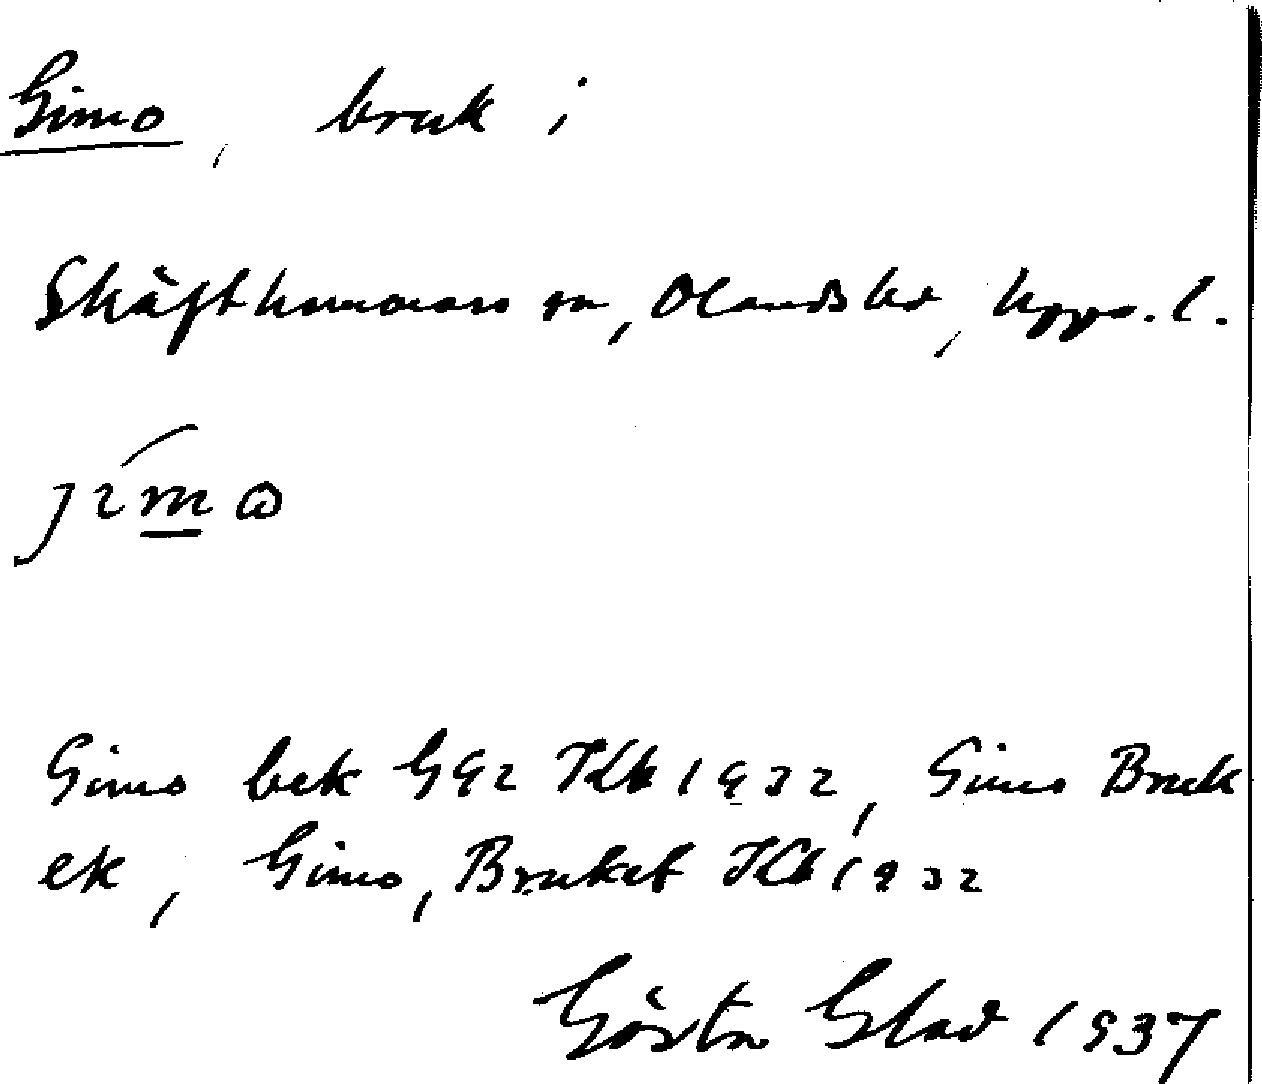 Gimo, bruk i
Skäfthammars sn, Olands hd, Upps. l.
Gimo bek G92 Kbk 1932, Gimo Bruk
ek, Gimo, Bruket Kbk 1932
Gösta Glad 1937